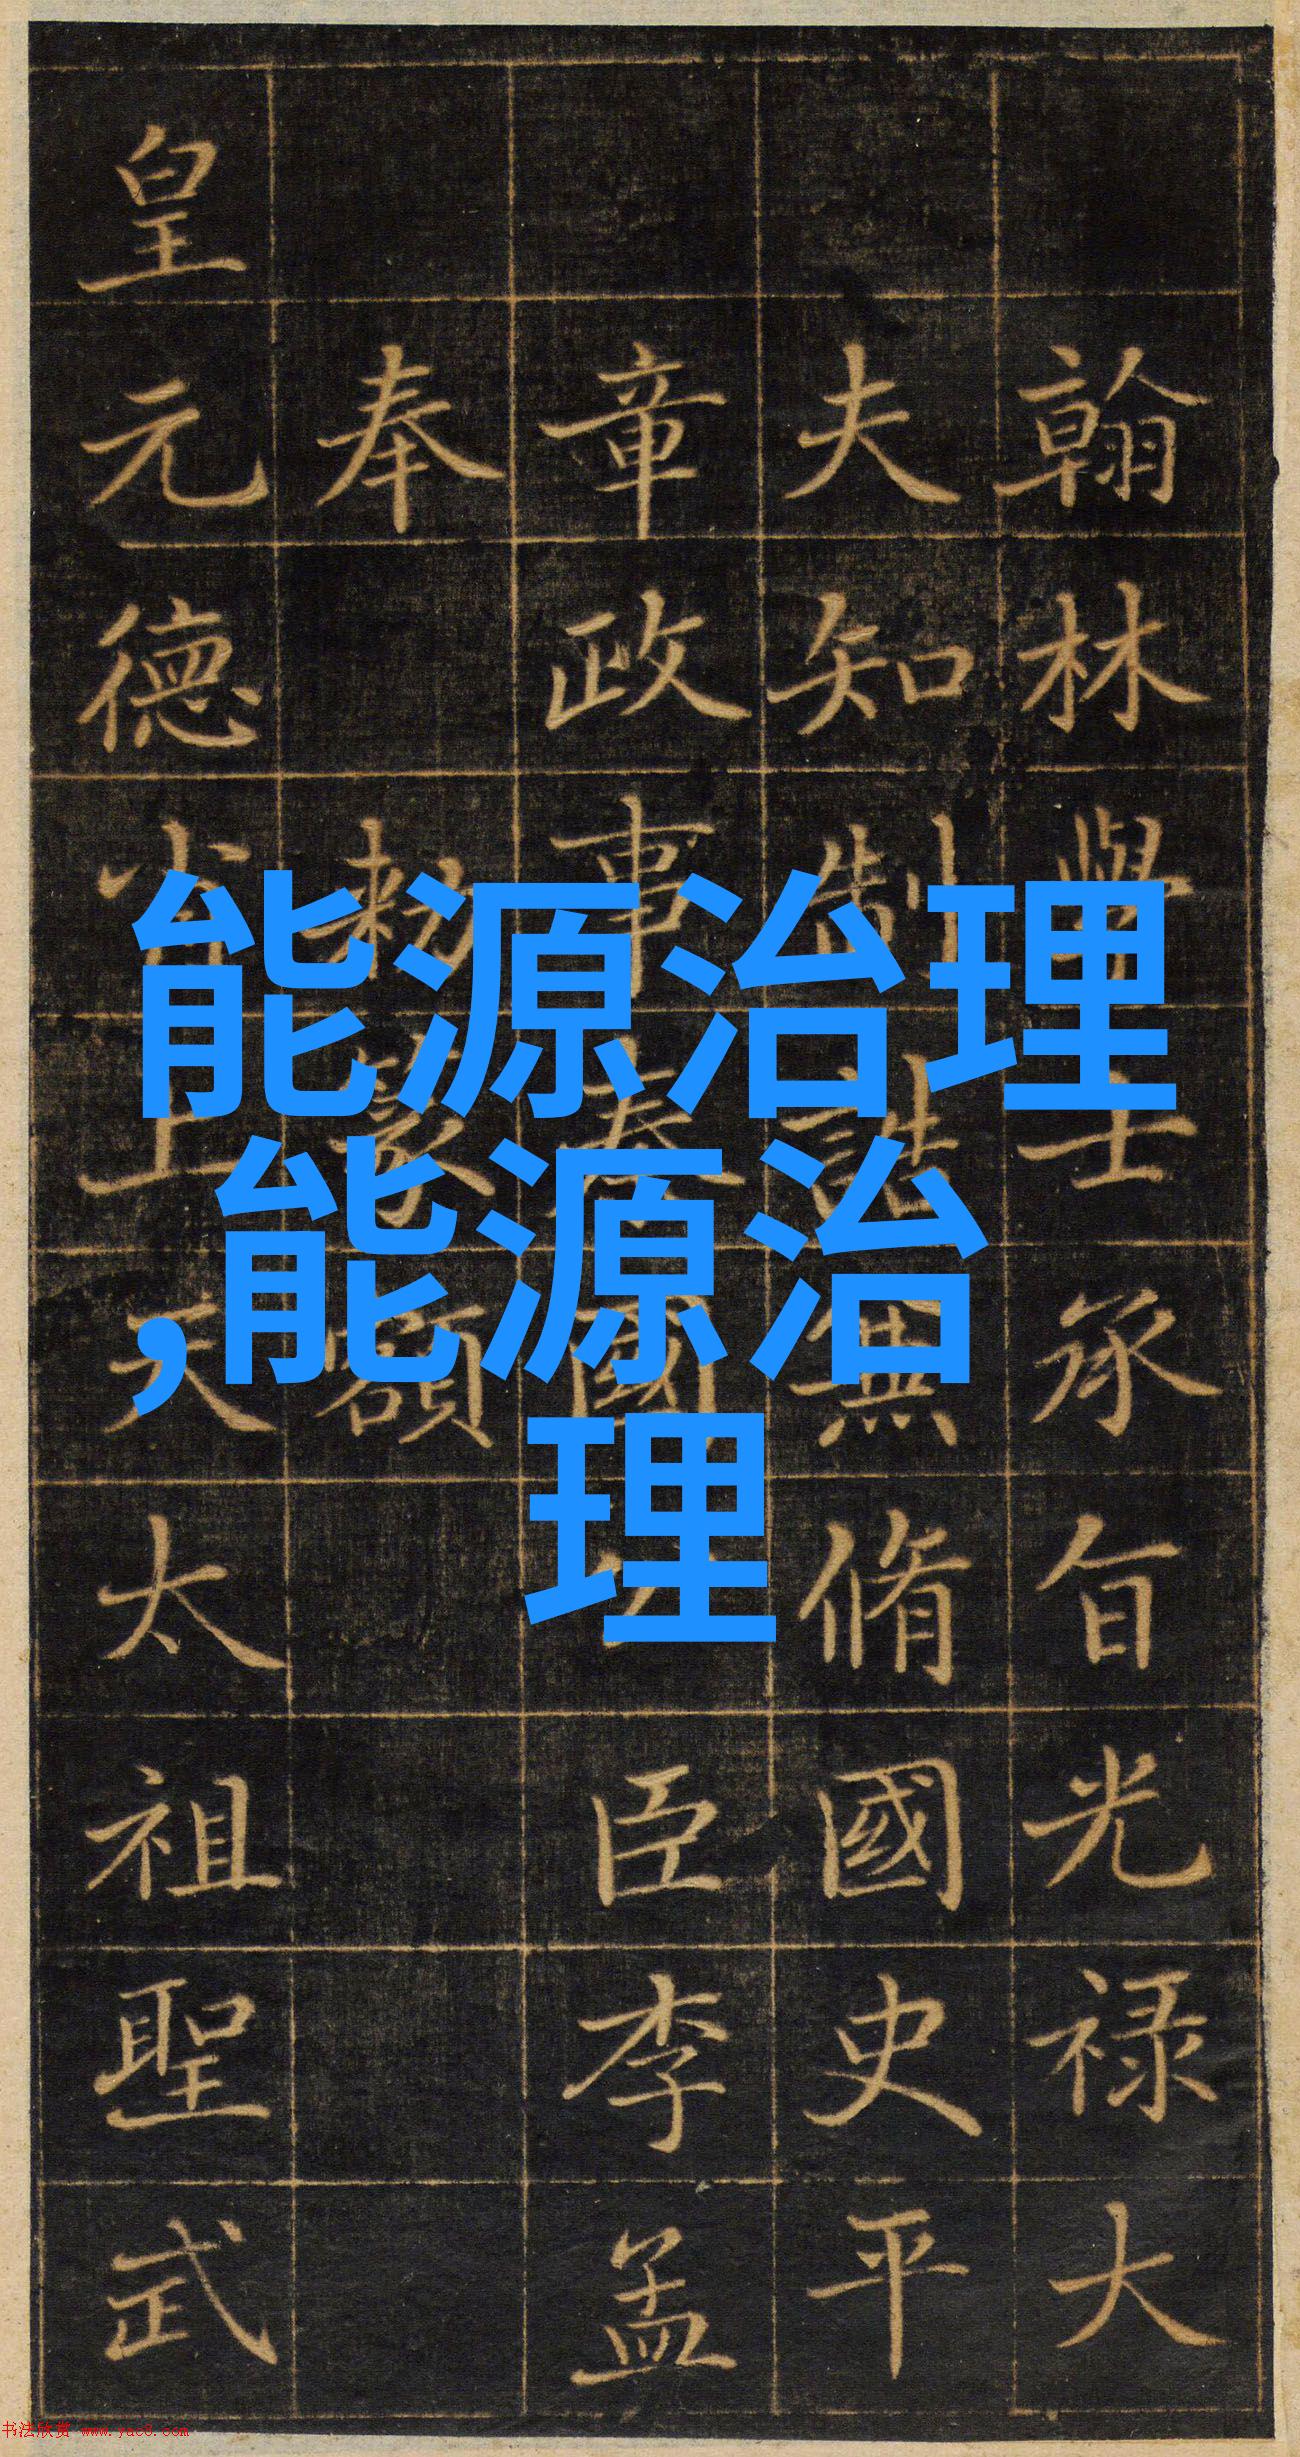 能源治理
,能源治
理
翰林學士承旨光禄大
夫知制誥兼脩國史平
章政事秦國臣李孟
奉勑篆額
皇元德上天太祖聖武
书法欣赏 www.yac8.com